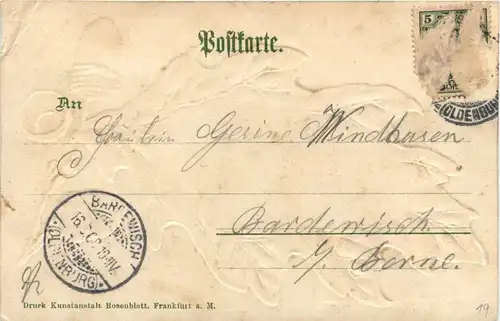 Postkarte.
5
(OLDENBU
An
Fräulein Gesine Windhusen
BARDEWISCH
(OLDENBURG)
Bardewisch
b/ Berne.
Druck Kunstanstalt Rosenblatt. Frankfurt a. M.
19